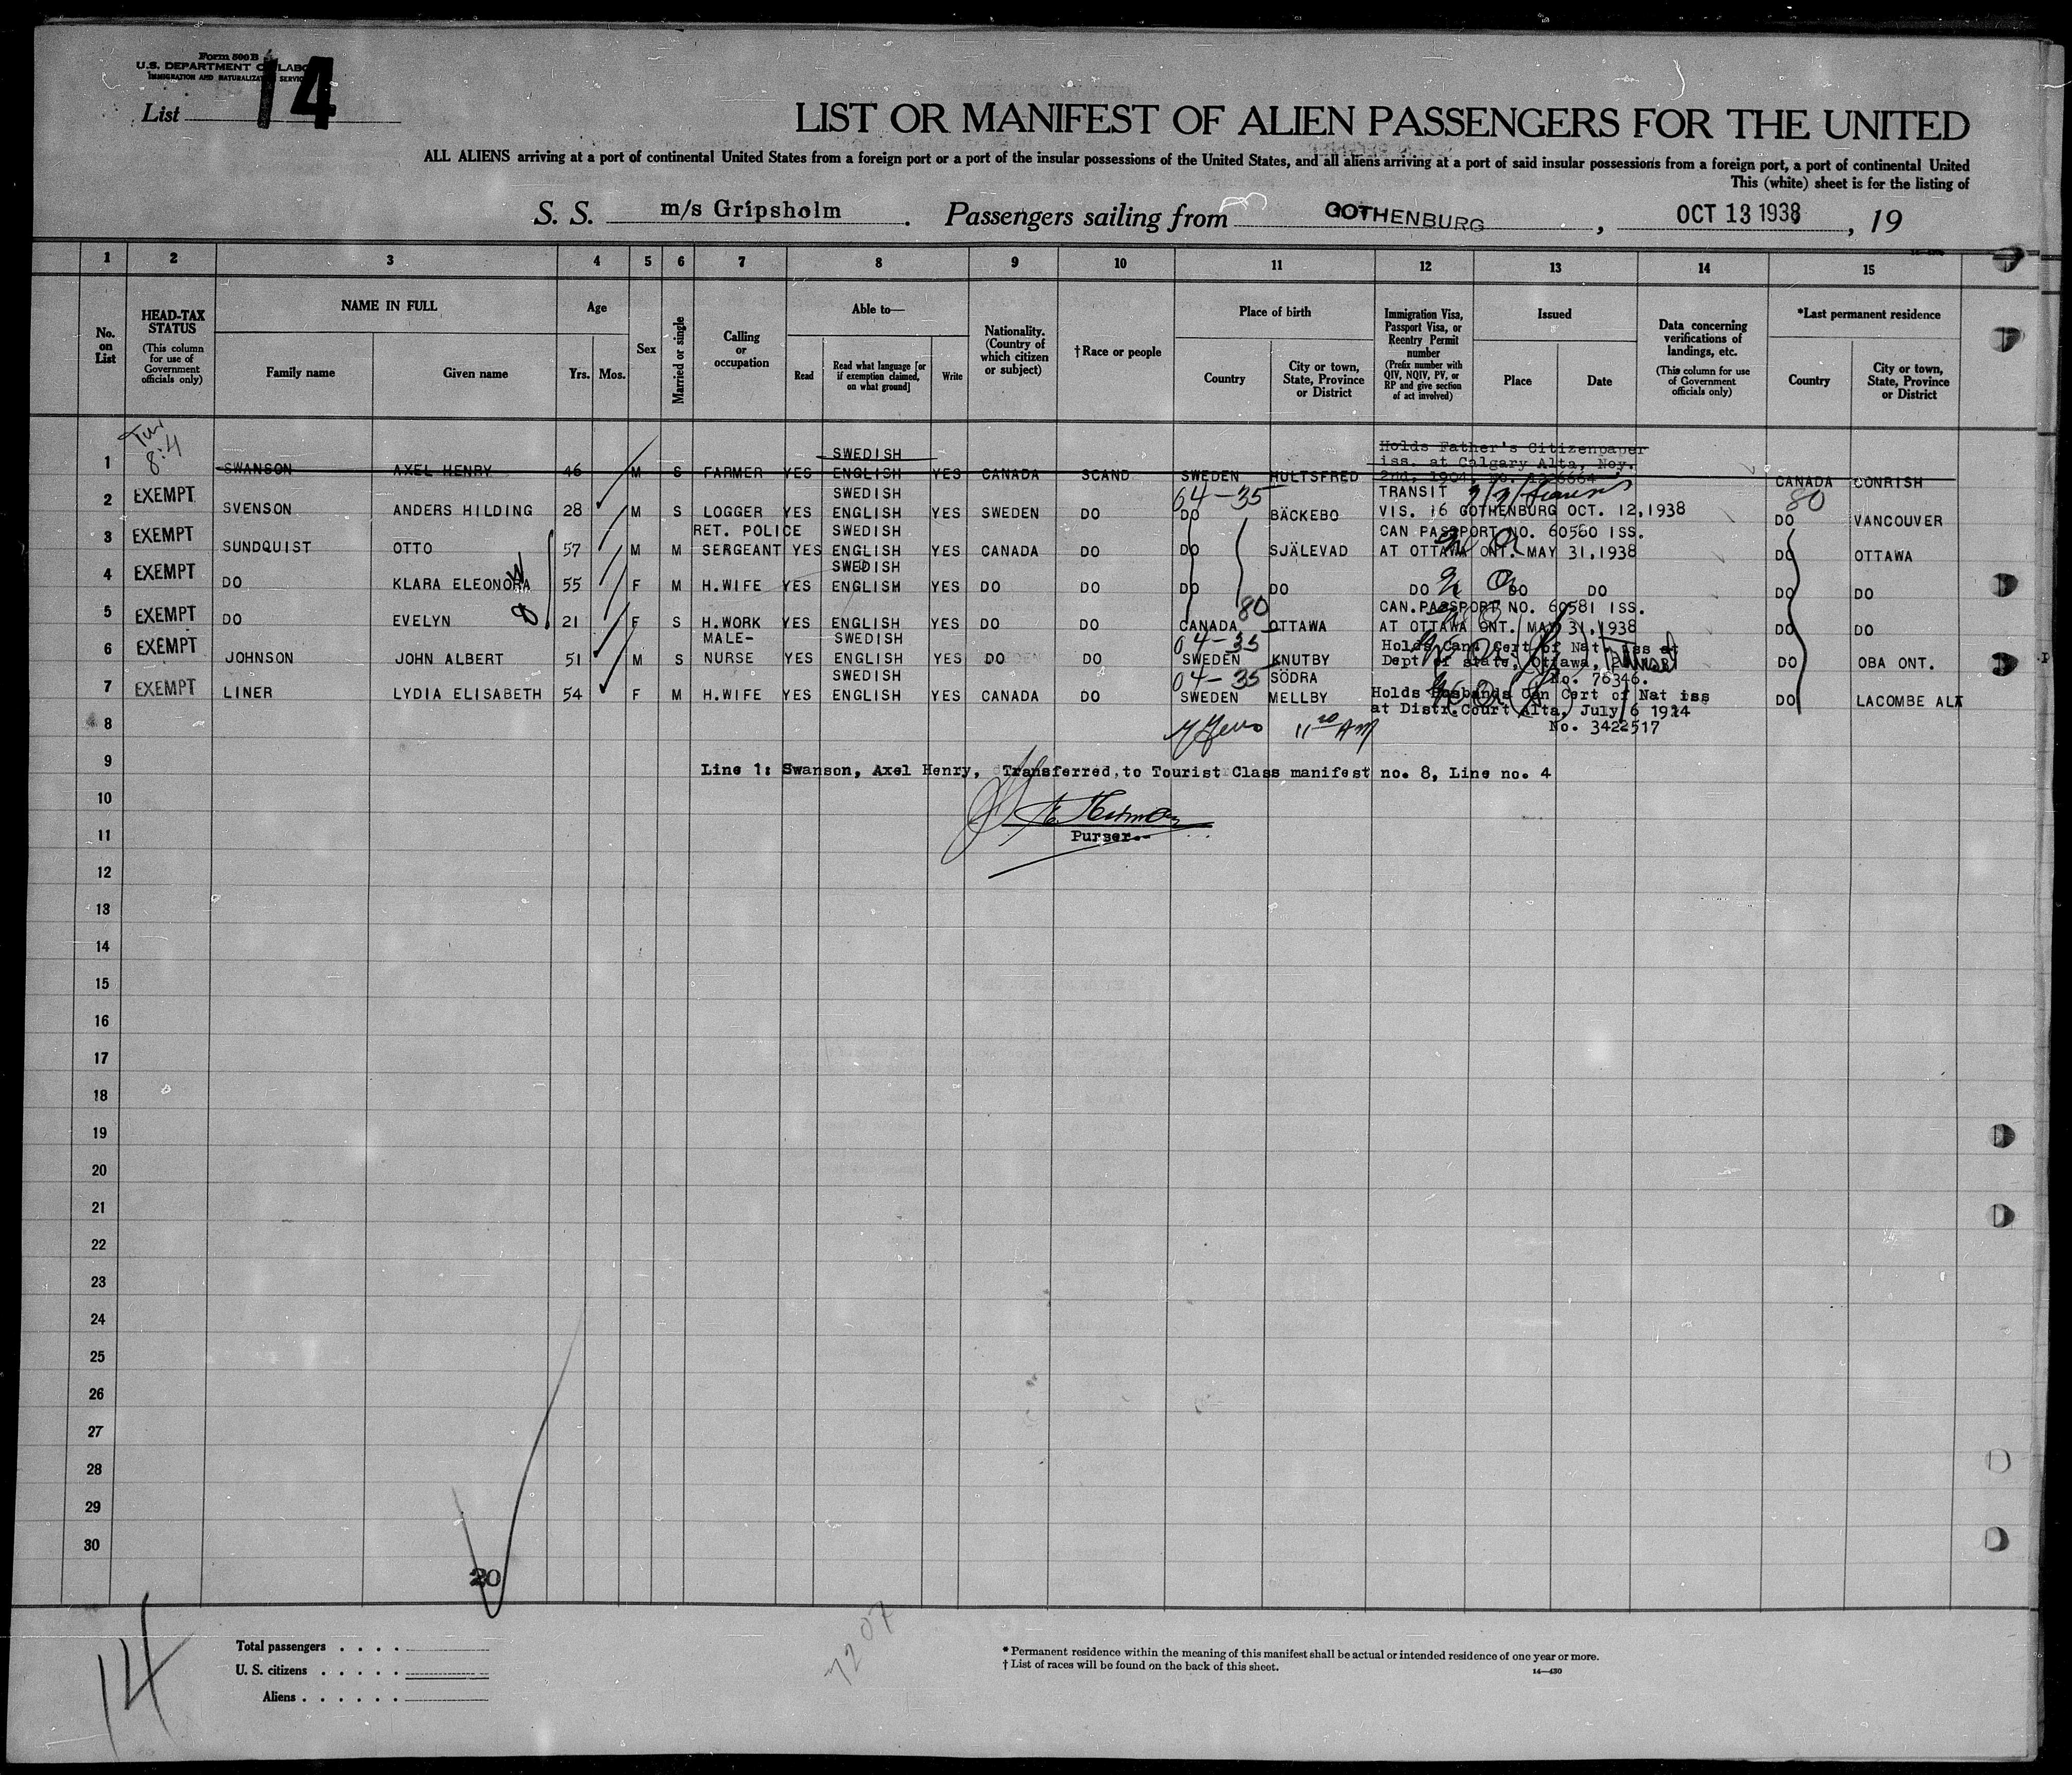 Form 500 B
U.S. DEPARTMENT OF LABOR
IMMIGRATION AND NATURALIZATION SERVICE
List 14
LIST OR MANIFEST OF ALIEN PASSENGERS FOR THE UNITED
ALL ALIENS arriving at a port of continental United States from a foreign port or a port of the insular possessions of the United States, and all aliens arriving at a port of said insular possessions from a foreign port, a port of continental United
This (white) sheet is for the listing of
S. S. m/s Gripsholm. Passengers sailing from GOTHENBURG, OCT 13 1938, 19
1 2 3 4 5 6 7 8 9 10 11 12 13 14 15
No. on List
HEAD-TAX STATUS
(This column for use of Government officials only)
NAME IN FULL
Family name Given name
Age
Yrs. Mos.
Sex
Married or single
Calling or occupation
Able to—
Read
Read what language [or if exemption claimed, on what ground]
Write
Nationality. (Country of which citizen or subject)
†Race or people
Place of birth
Country
City or town, State, Province or District
Immigration Visa, Passport Visa, or Reentry Permit number
(Prefix number with QIV, NQIV, PV, or RP and give section of act involved)
Issued
Place Date
Data concerning verifications of landings, etc.
(This column for use of Government officials only)
*Last permanent residence
Country
City or town, State, Province or District
Holds Father's Citizenpaper
SWEDISH iss. at Calgary Alta, Nov.
1 SWANSON AXEL HENRY 46 M S FARMER YES ENGLISH YES CANADA SCAND SWEDEN HULTSFRED 2nd, 1904, No. CANADA CONRISH
EXEMPT SWEDISH 64-35 TRANSIT 80
2 SVENSON ANDERS HILDING 28 M S LOGGER YES ENGLISH YES SWEDEN DO DO BÄCKEBO VIS. 16 GOTHENBURG OCT. 12,1938 DO VANCOUVER
EXEMPT RET. POLICE SWEDISH CAN PASSPORT NO. 60560 ISS.
3 SUNDQUIST OTTO 57 M M SERGEANT YES ENGLISH YES CANADA DO DO SJÄLEVAD AT OTTAWA ONT. MAY 31,1938 DO OTTAWA
EXEMPT SWEDISH
4 DO KLARA ELEONORA 55 F M H.WIFE YES ENGLISH YES DO DO DO DO DO DO DO DO DO
EXEMPT 80 CAN.PASSPORT NO. 60581 ISS.
5 DO EVELYN 21 F S H.WORK YES ENGLISH YES DO DO CANADA OTTAWA AT OTTAWA ONT. MAY 31,1938 DO DO
EXEMPT MALE- SWEDISH 04-35 Holds Can. Cert of Nat. iss at
6 JOHNSON JOHN ALBERT 51 M S NURSE YES ENGLISH YES DO DO SWEDEN KNUTBY Dept of state, Ottawa, DO OBA ONT.
EXEMPT SWEDISH 04-35 SÖDRA No. 76346.
7 LINER LYDIA ELISABETH 54 F M H.WIFE YES ENGLISH YES CANADA DO SWEDEN MELLBY Holds Husbands Can Cert of Nat iss DO LACOMBE ALT
at Distr. Court Alta, July 6 1914
8 11 AM No. 3422517
9 Line 1: Swanson, Axel Henry, Transferred to Tourist Class manifest no. 8, Line no. 4
10
11 Purser.-
12
13
14
15
16
17
18
19
20
21
22
23
24
25
26
27
28
29
30
20
14
7207
Total passengers . . . .
U. S. citizens . . . . .
Aliens . . . . . .
* Permanent residence within the meaning of this manifest shall be actual or intended residence of one year or more.
† List of races will be found on the back of this sheet.
14—430